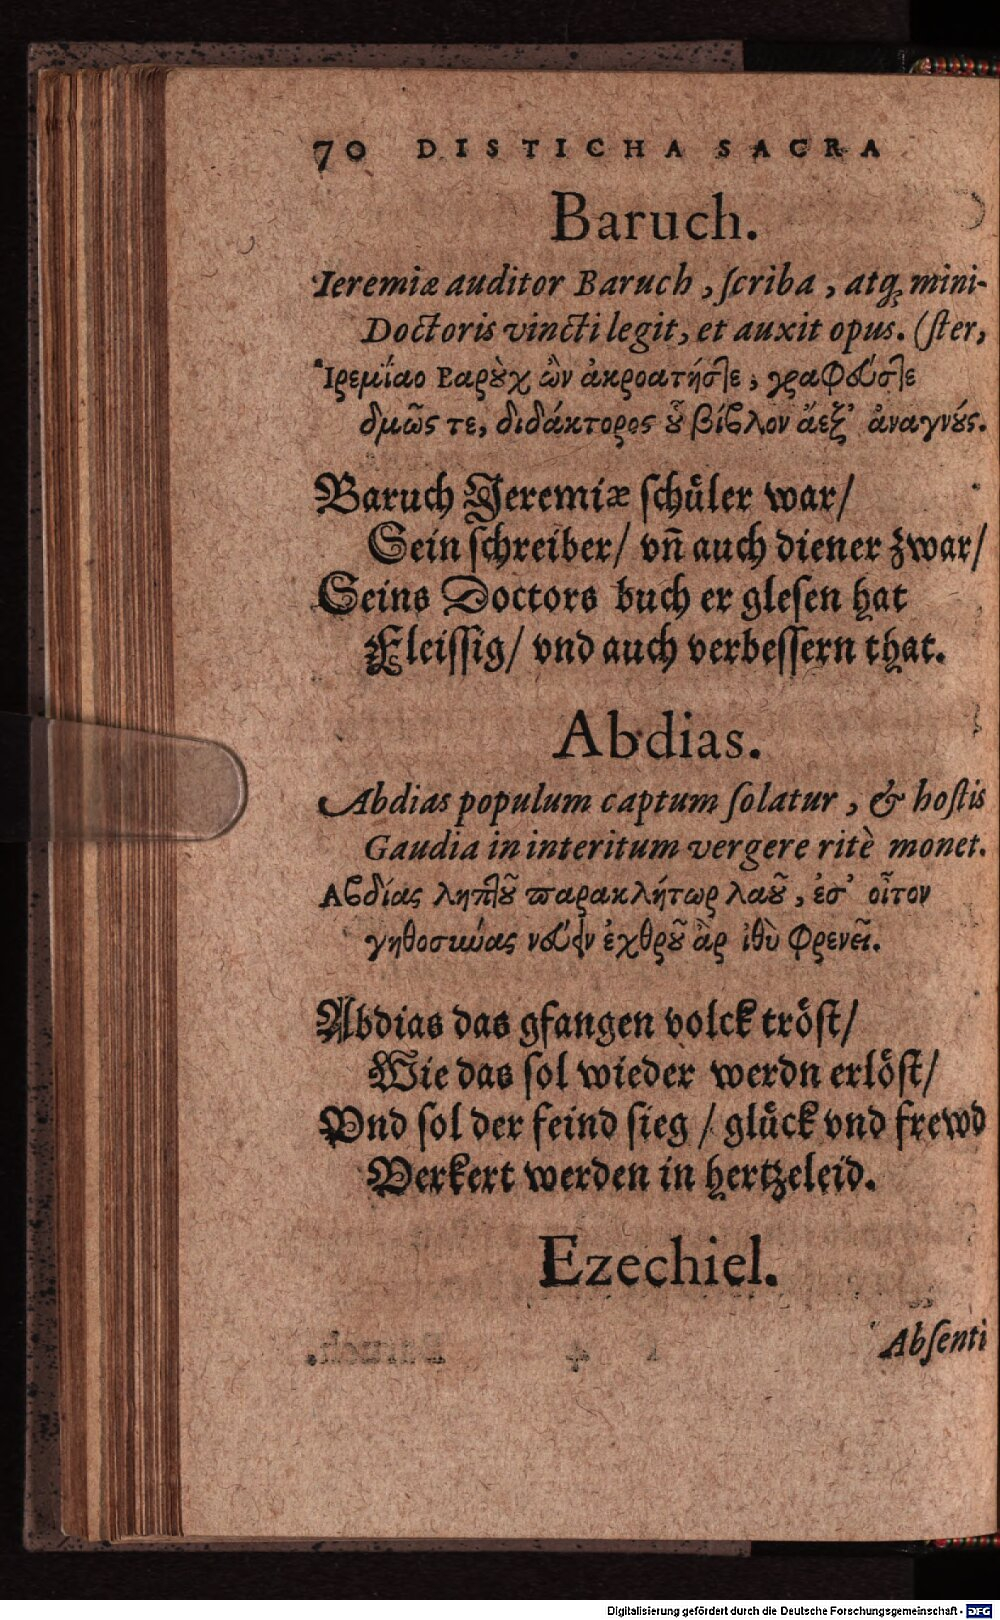 70 DISTICHA SACRA
Baruch.
Ieremiæ auditor Baruch, ſcriba, atq; mini-
Doctoris vincti legit, et auxit opus. (ſter,
Ἰρεμίαο Βαροὺχ ὢν ἀκροατήσ]ε, γραφούσ]ε
δμῶς τε, διδάκτορος οὗ βίβλον ἄεξ' ἀναγνούς.
Baruch Jeremiæ ſchuͤler war/
Sein ſchreiber/ vñ auch diener zwar/
Seins Doctors buch er gleſen hat
Fleiſſig/ vnd auch verbeſſern that.
Abdias.
Abdias populum captum ſolatur, & hoſtis
Gaudia in interitum vergere ritè monet.
Αβδίας ληπ]οῦ παρακλήτωρ λαοῦ, ἐσ' οἶτον
γηθοσύνας ἐχθροῦ ἂρ ἰθὺ φρενοῖ.
Abdias das gfangen volck troͤſt/
Wie das ſol wieder werdn erloͤſt/
Vnd ſol der feind ſieg / gluͤck vnd frewd
Verkert werden in hertzeleid.
Ezechiel.
Abſenti
Digitalisierung gefördert durch die Deutsche Forschungsgemeinschaft - DFG